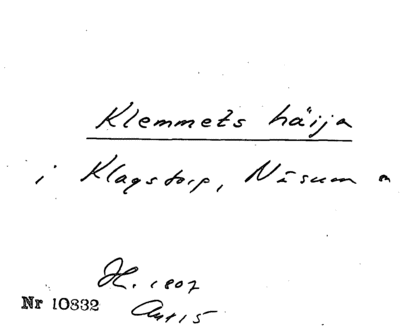 Klemmets häija
i Klagstorp, Näsum
H. 1807
Nr 10832